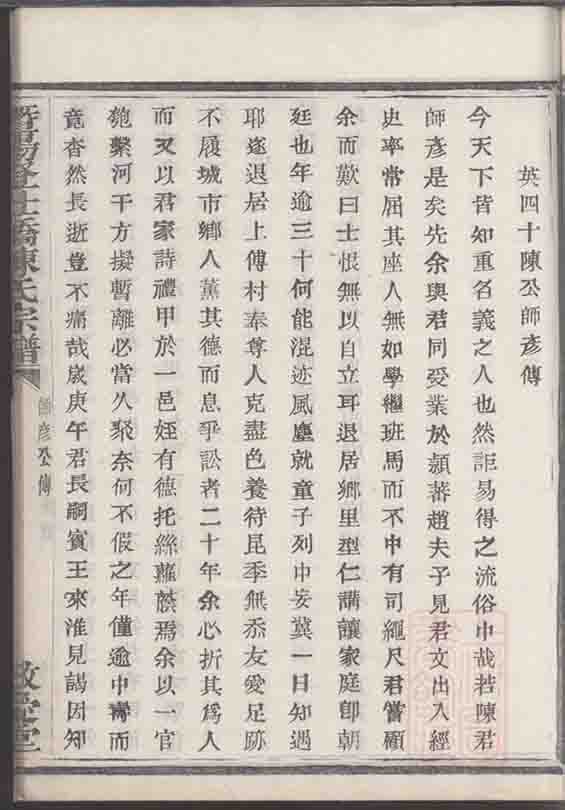 英四十陳公師彥傳
今天下皆知重名義之人也然詎易得之流俗中哉若陳君
師彥是矣先余與君同受業於潁蕃趙夫子見君文出入經
史率常屈其座人無如學繼班馬而不中有司繩尺君嘗顧
余而歎曰士恨無以自立耳退居鄉里型仁講讓家庭卽朝
廷也年逾三十何能混迹風塵就童子列中妄冀一日知遇
耶遂退居上傅村奉尊人克盡色養待昆季無忝友愛足跡
不履城市鄉人薰其德而息爭訟者二十年余心折其爲人
而又以君家詩禮甲於一邑姪有德托絲蘿蔭焉余以一官
匏繫河干方擬暫離必當久聚奈何不假之年僅逾中壽而
竟杳然長逝豈不痛哉歲庚午君長嗣賓王來淮見謁因知
陳氏宗譜
師彥公傳